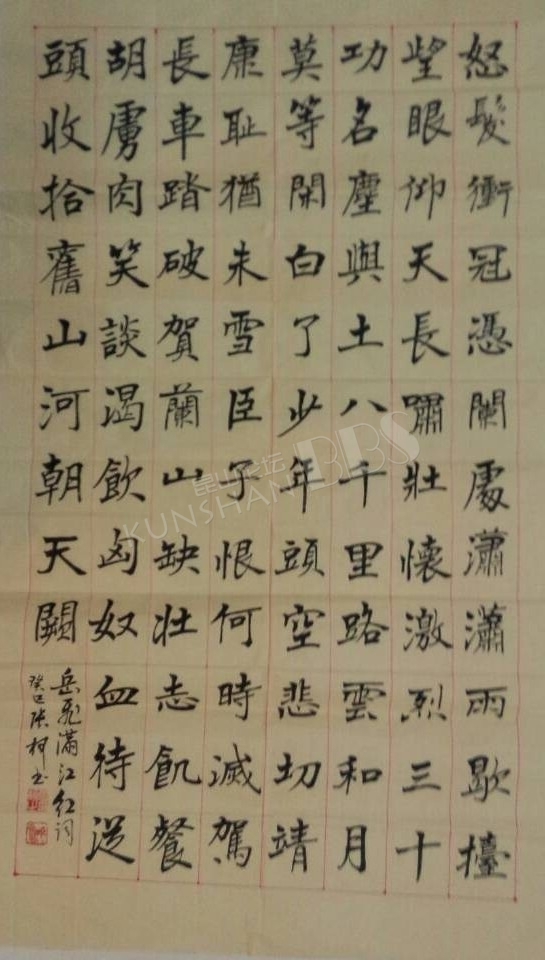 怒髮衝冠憑闌處瀟瀟雨歇擡
望眼仰天長嘯壯懷激烈三十
功名塵與土八千里路雲和月
莫等閑白了少年頭空悲切靖
康耻猶未雪臣子恨何時滅駕
長車踏破賀蘭山缺壯志飢餐
胡虜肉笑談渴飲匈奴血待從
頭收拾舊山河朝天闕
岳飛滿江红词
癸巳柯书
昆山论坛 BBS
KUNSHAN